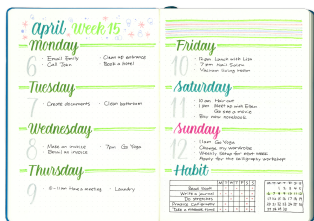 april Week 15
Monday
6
Email Emily
Call Tom
Clean up entrance
Book a hotel
Tuesday
7
Create documents
Clean bathroom
Wednesday
8
Make an invoice
Send an invoice
7pm Go Yoga
Thursday
9
9-11am Have a meeting
Laundry
Friday
10
12am Lunch with Lisa
7am Nail Salon
Saturday
11
10am Hair cut
1am Meet up with Eden
Go see a movie
Buy new notebook
Sunday
12
11am Go Yoga
Change my wardrobe
Weekly Setup for next week
Apply for the calligraphy workshop
Habit
M T W T F S S
Read book
Write a journal
Do stretches
Practice calligraphy
Take a makeup time